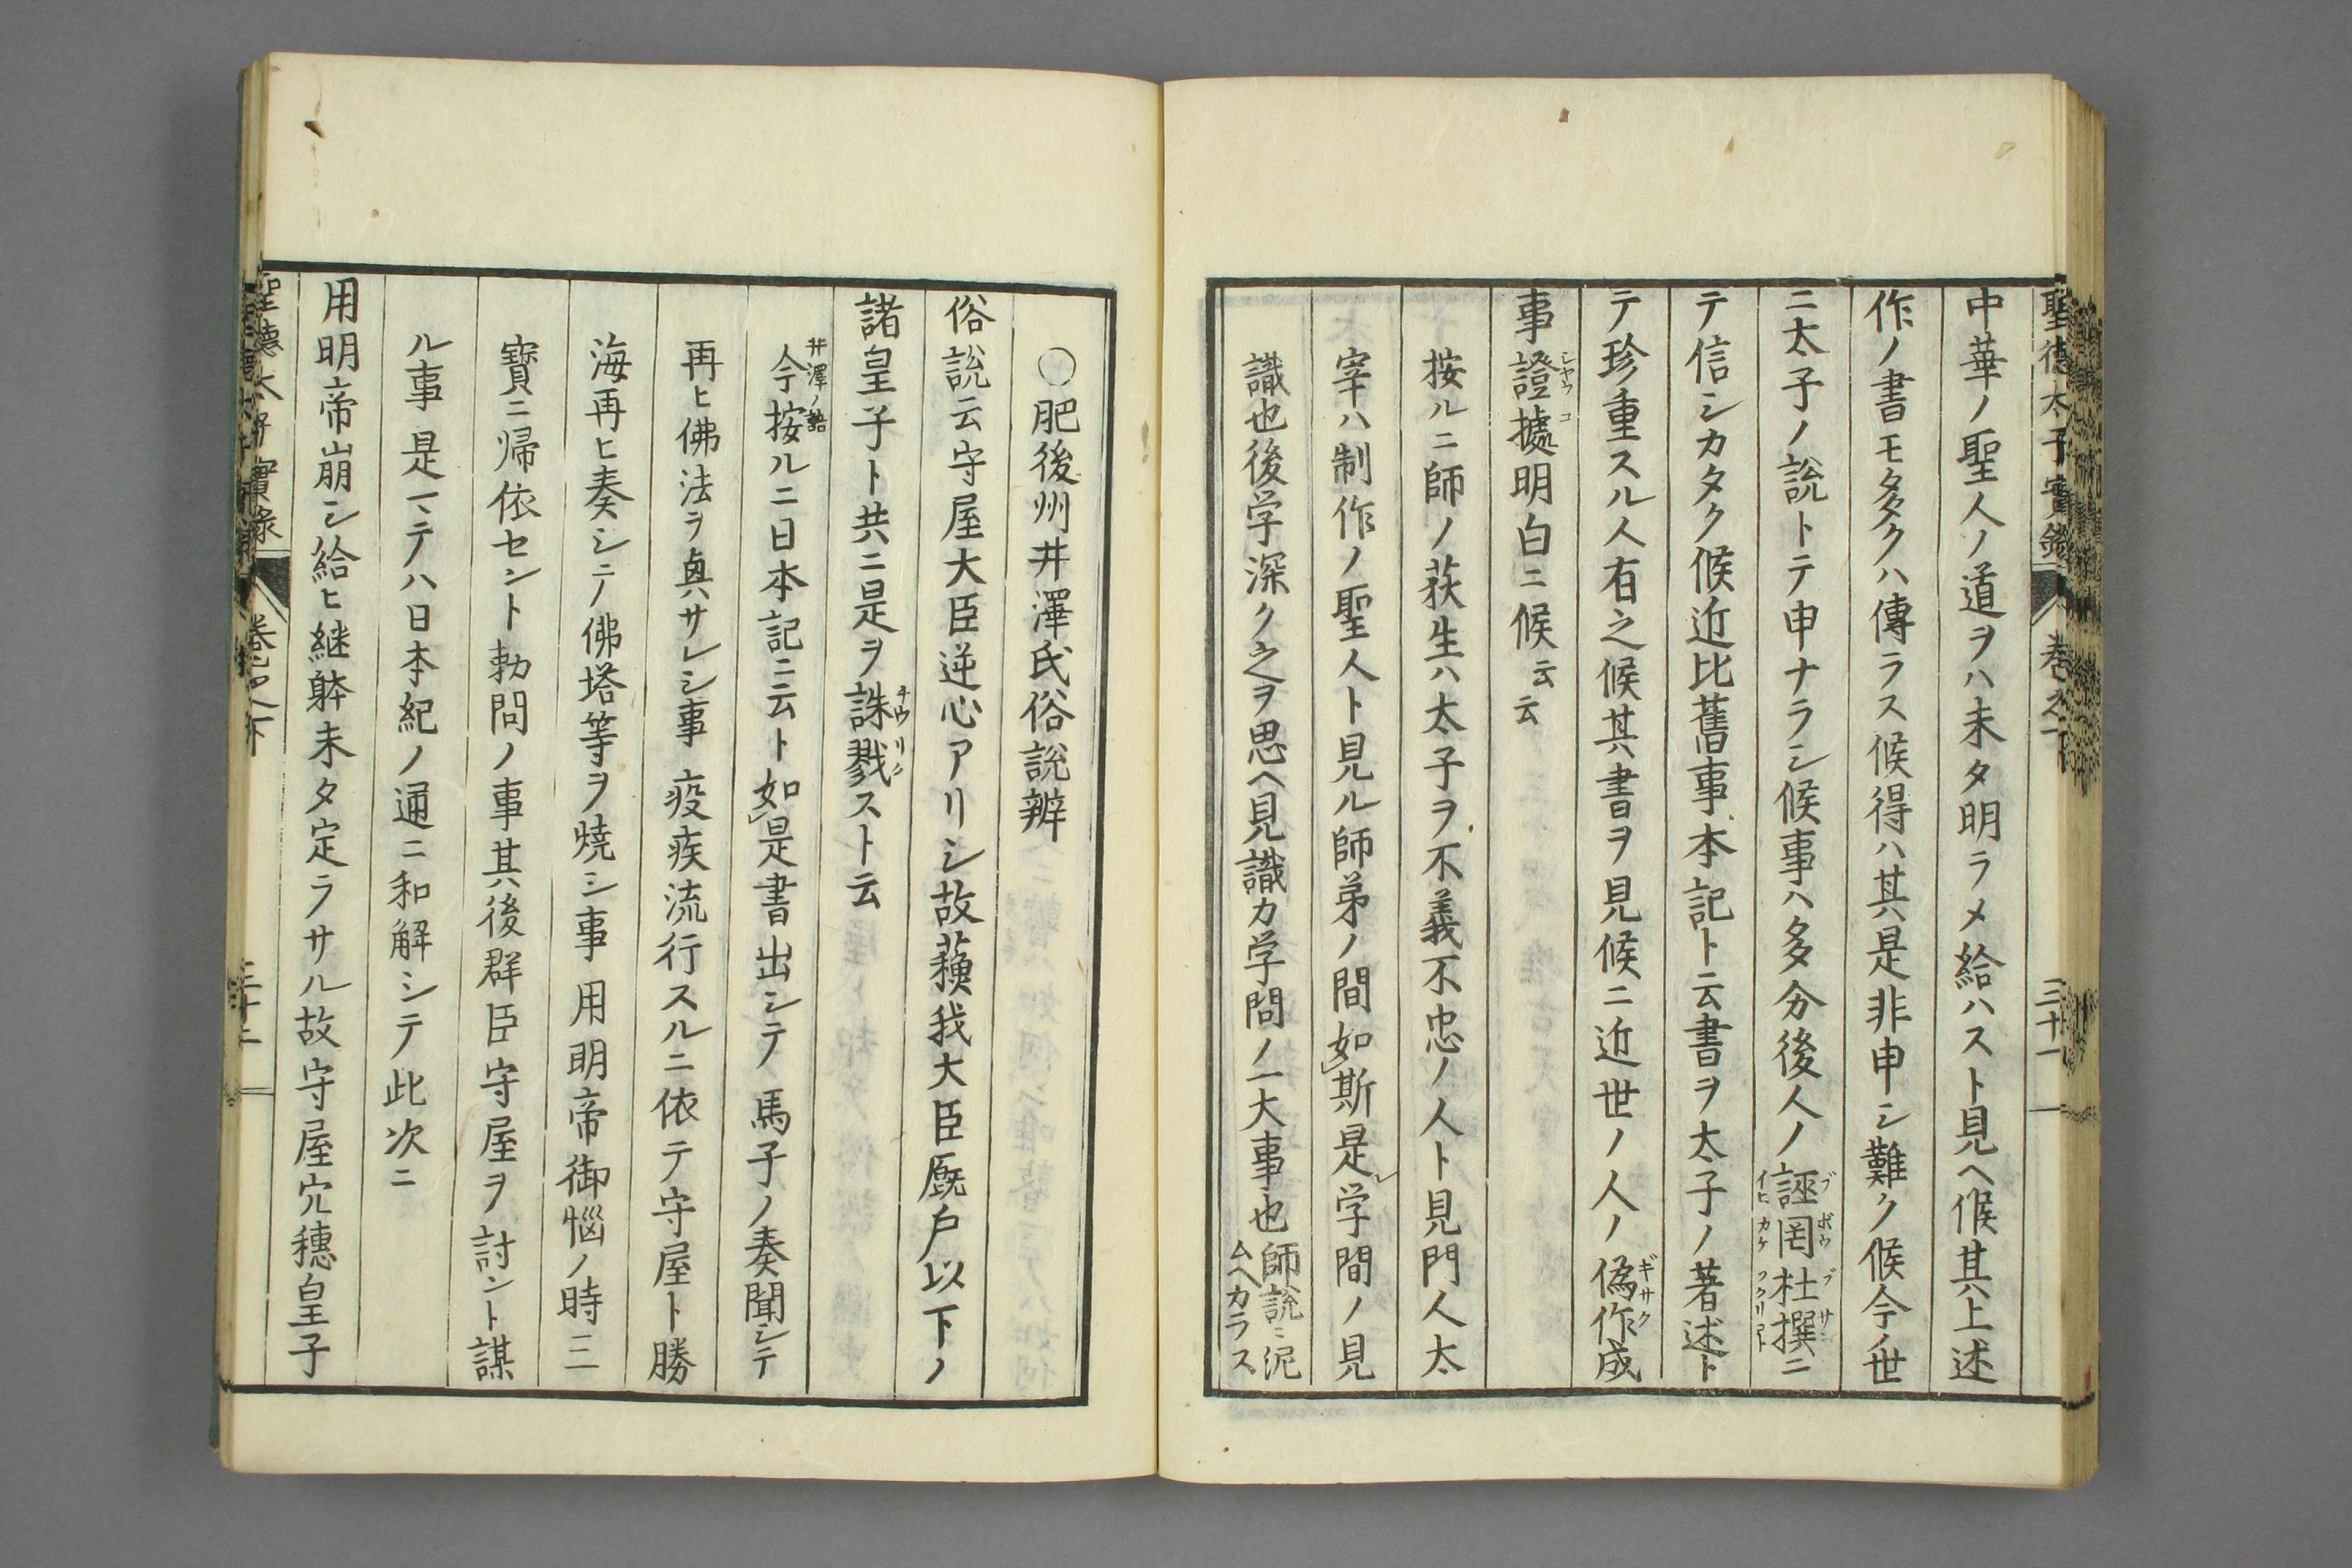 聖德太子實錄 卷之下 三十一
中華ノ聖人ノ道ヲハ未タ明ラメ給ハスト見ヘ候其上述
作ノ書モ多クハ傳ラス候得ハ其是非申シ難ク候今ノ世
ニ太子ノ說トテ申ナラシ候事ハ多分後人ノ誣罔杜撰ニ
テ信シカタク候近比舊事本記ト云書ヲ太子ノ著述ト
テ珍重スル人有之候其書ヲ見候ニ近世ノ人ノ偽作成
事證據明白ニ候云云
按ルニ師ノ荻生ハ太子ヲ不義不忠ノ人ト見門人太
宰ハ制作ノ聖人ト見ル師弟ノ間如斯是学問ノ見
識也後学深ク之ヲ思ヘ見識カ学問ノ一大事也師說ニ泥ムヘカラス
○肥後州井澤氏俗說辨
俗說云守屋大臣逆心アリシ故蘓我大臣厩戶以下ノ
諸皇子ト共ニ是ヲ誅戮スト云
井澤ノ語
今按ルニ日本記ニ云ト如是書出シテ馬子ノ奏聞シテ
再ヒ佛法ヲ奥サレシ事疫疾流行スルニ依テ守屋ト勝
海再ヒ奏シテ佛塔等ヲ燒シ事用明帝御惱ノ時三
寶ニ帰依セント勅問ノ事其後群臣守屋ヲ討ント謀
ル事是マテハ日本紀ノ通ニ和解シテ此次ニ
用明帝崩シ給ヒ継躰未タ定ラサル故守屋穴穗皇子
聖德太子實錄 卷之下 三十二